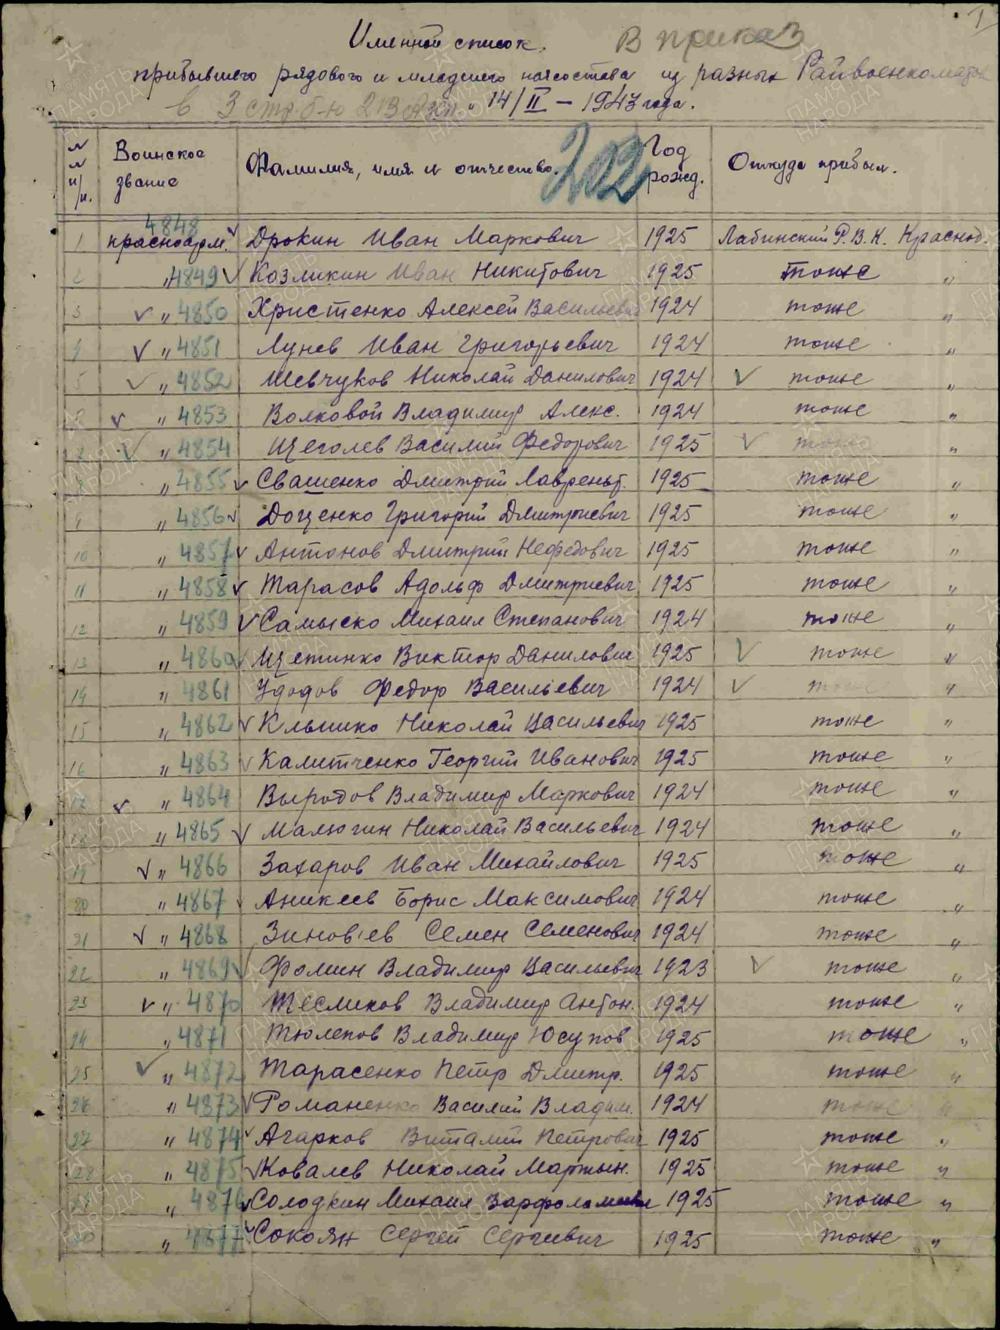 1
Именной список. В приказ
прибывшего рядового и младшего начсостава из разных Райвоенкоматов
в 3 стр. б-н 213 Азсп. „14/II – 1943 года.
№№ п/п. Воинское звание Фамилия, имя и отчество. 202 Год рожд. Откуда прибыл.
1 красноарм. 4848 Дрокин Иван Маркович 1925 Лабинский Р.В.К. Краснод.
2 „ 4849 Козликин Иван Никитович 1925 тоже „
3 „ 4850 Христенко Алексей Васильевич 1924 тоже „
4 „ 4851 Лунев Иван Григорьевич 1924 тоже „
5 „ 4852 Шевчуков Николай Данилович 1924 тоже „
„ 4853 Волковой Владимир Алекс. 1924 тоже „
„ 4854 Щеголев Василий Федорович 1925 тоже „
8 „ 4855 Свашенко Дмитрий Лаврент. 1925 тоже „
9 „ 4856 Доценко Григорий Дмитриевич 1925 тоже „
10 „ 4857 Антонов Дмитрий Нефедович 1925 тоже „
11 „ 4858 Тарасов Адольф Дмитриевич 1925 тоже „
12 „ 4859 Самыско Михаил Степанович 1924 тоже „
13 „ 4860 Щетинко Виктор Данилович 1925 тоже „
14 „ 4861 Удодов Федор Васильевич 1924 тоже „
15 „ 4862 Клышко Николай Васильевич 1925 тоже „
16 „ 4863 Калитченко Георгий Иванович 1925 тоже „
17 „ 4864 Выродов Владимир Маркович 1924 тоже „
18 „ 4865 Малюгин Николай Васильевич 1924 тоже „
19 „ 4866 Захаров Иван Михайлович 1925 тоже „
20 „ 4867 Аникеев Борис Максимович 1924 тоже „
21 „ 4868 Зиновьев Семен Семенович 1924 тоже „
22 „ 4869 Фомин Владимир Васильевич 1923 тоже „
23 „ 4870 Тесликов Владимир Антон. 1924 тоже „
24 „ 4871 Тюлепов Владимир Юсупов 1925 тоже „
25 „ 4872 Тарасенко Петр Дмитр. 1925 тоже „
26 „ 4873 Романенко Василий Владим. 1924 тоже „
27 „ 4874 Агарков Виталий Петрович 1925 тоже „
28 „ 4875 Ковалев Николай Мартын. 1925 тоже „
29 „ 4876 Солодкин Михаил Варфоломеев 1925 тоже „
30 „ 4877 Сокоян Сергей Сергеевич 1925 тоже „